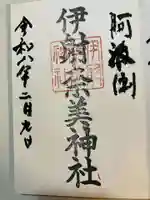 阿波国
伊射奈美神社
令和八年二月九日